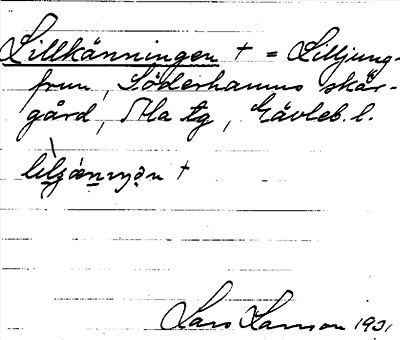 Lillkänningen + = Lilljung-
frun, Söderhamns skär-
gård, Ma tg, Gävleb. l.
lilɟæ̀nnıŋən +
Lars Larsson 1931